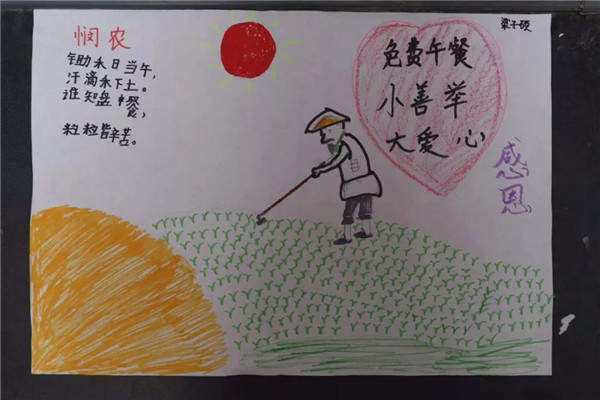 悯农
锄禾日当午,
汗滴禾下土。
谁知盘中餐,
粒粒皆辛苦。
免费午餐
小善举
大爱心
感恩
梁子硕